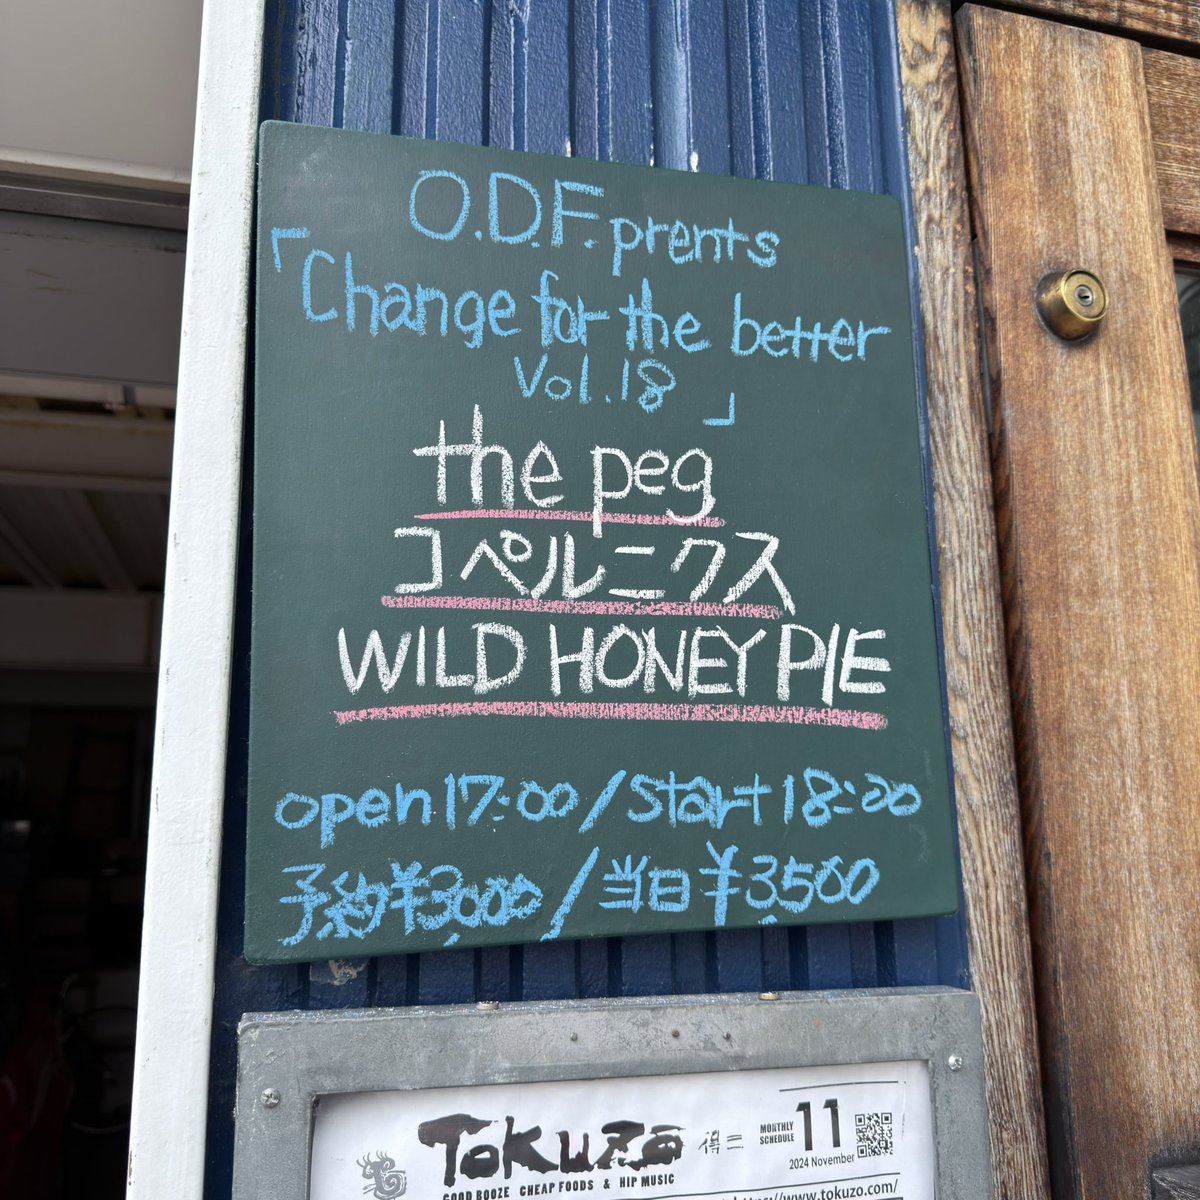 O.D.F. prents
「Change for the better
Vol.18」
the peg
コペルニクス
WILD HONEY PIE
open 17:00/start 18:00
予約¥3,000/当日¥3,500
TOKUZO 得三 MONTHLY SCHEDULE 11
2024 November
GOOD BOOZE CHEAP FOODS & HIP MUSIC
https://www.tokuzo.com/